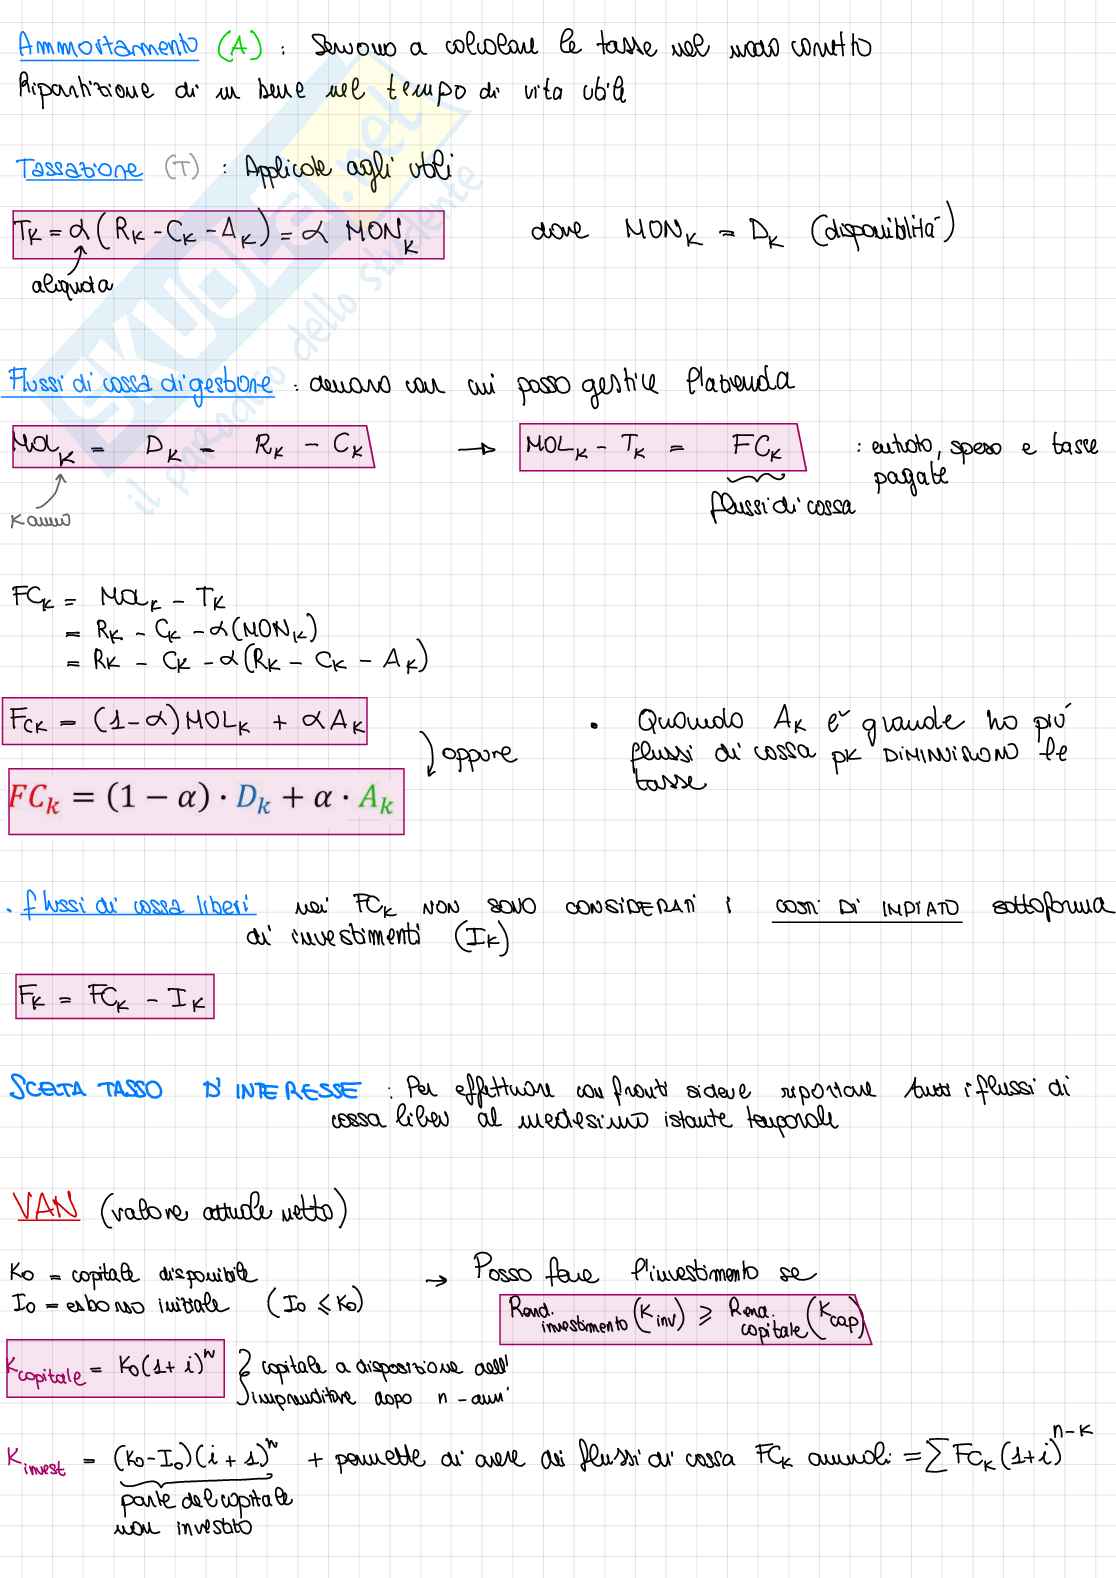 Ammortamento (A) : Servono a calcolare le tasse nel modo corretto
Ripartizione di un bene nel tempo di vita utile
Tassazione (T) : Applicate agli utili
T_K = α (R_K - C_K - A_K) = α MON_K dove MON_K = D_K (disponibilità)
aliquota
Flussi di cassa di gestione : denaro con cui posso gestire l'azienda
MOL_K = D_K = R_K - C_K → MOL_K - T_K = FC_K : entrato, speso e tasse
pagate
K anno
flussi di cassa
FC_K = MOL_K - T_K
= R_K - C_K - α(MON_K)
= R_K - C_K - α(R_K - C_K - A_K)
F_CK = (1-α)MOL_K + αA_K
oppure
FC_k = (1 − α) · D_k + α · A_k
• Quando A_K è grande ho più
flussi di cassa pk DIMINUISCONO le
tasse
. flussi di cassa liberi nei FC_K NON SONO CONSIDERATI i COSTI DI IMPIATO sottoforma
di investimenti (I_K)
F_K = FC_K - I_K
SCELTA TASSO D'INTERESSE : Per effettuare confronti si deve riportare tutti i flussi di
cassa liberi al medesimo istante temporale
VAN (valore attuale netto)
K0 = capitale disponibile
I0 = esborso iniziale (I0 ≤ K0)
→ Posso fare l'investimento se
Rend. investimento (K_inv) ≥ Rend. capitale (K_cap)
K_capitale = K0(1+i)^n } capitale a disposizione dell'
imprenditore dopo n-anni
K_invest = (K0-I0)(i+1)^n + permette di avere dei flussi di cassa FC_K annuali = ∑ FC_K (1+i)^n-K
parte del capitale
non investito
SKUOLA.net
il paradiso dello studente